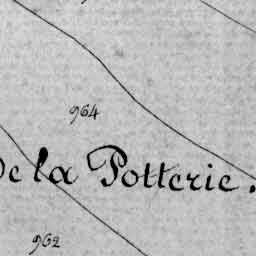 964
De la Potterie.
962